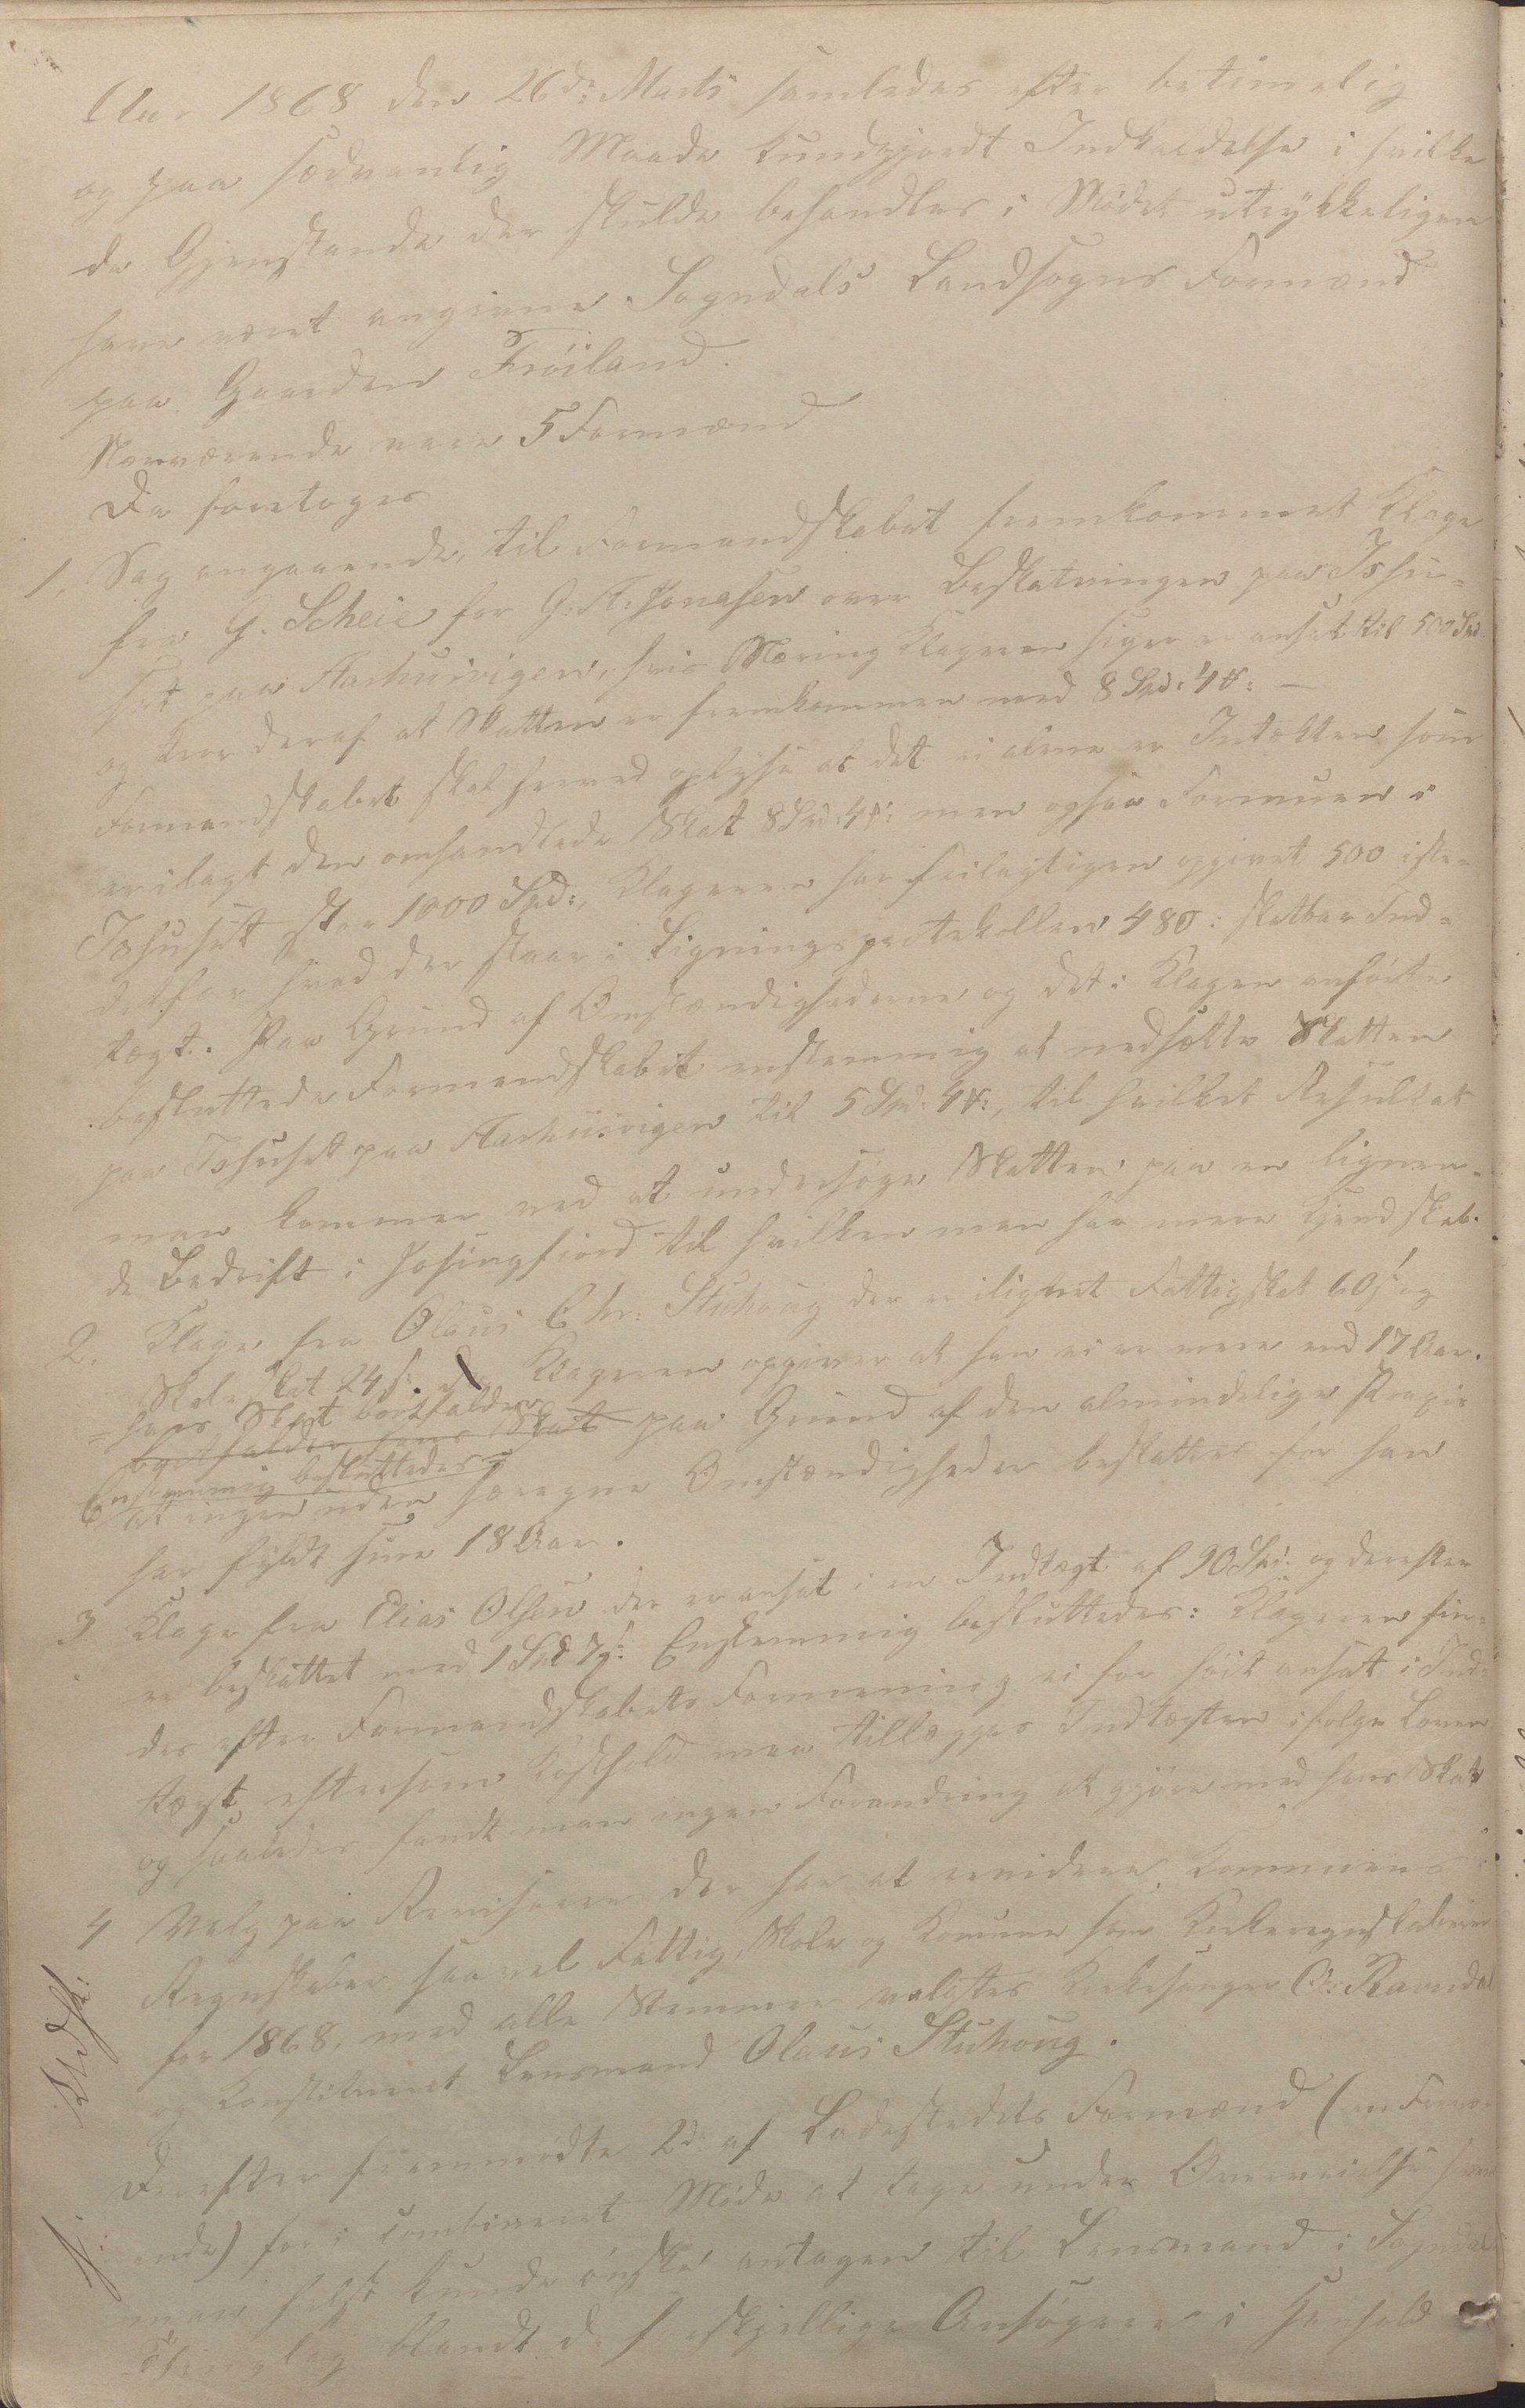 Aar 1868 den 26de Marts samledes efter betimelig
og paa sædvanlig Maade kundgjordt Indkaldelse i hvilke
de Gjenstande der skulde behandles i Mødet utrykkeligen
have været angivne Sogndals Landsogns Formænd
paa Gaarden Frøiland.
Nærværende vare 5 Formænd
Da foretoges
1, Sag angaaende, til Formandskabet fremkommet Klage
fra G. Scheie for G. A. Jonasen over Beskatningen paa Ishu-
set paa Aarhusvigen, hvis Næring Klageren siger er ansat til 500 Spd.
og tror deraf at Skatten er fremkommen med 8 Spd: 4 :  —
Formandskabet skal herved oplyse at det ei alene er Intækten som
er ilagt den omhandlede Skat 8 Spd: 4 : men ogsaa Formuen i
Ishuset stor 1000 Spd:, Klageren har feilagtigen opgivet 500 iste-
detfor hvad der staar i Ligningsprotokollen 480: skatbar Ind-
tægt. Paa Grund af Omstændighederne og det i Klagen anførte
besluttede Formandskabet enstemmig at nedsætte Skatten
paa Ishuset paa Aarhusvigen til 5 Spd: 4 :, til hvilket Resultat
man kommer ved at undersøge Skatten paa en lignen-
de Bedrift i Jøsingfiord til hvilken man har mere Kjendskab.
2. Klage fra Olaus Chr: Stuhoug der er ilignet Fattigskat 60 s og
Skoleskat 24 s. Klageren opgiver at han ei er mere end 17 Aar.
= hans Skat bortfalder
bortfalder hans Skat paa Grund af den almindelige Praxis
Enstemmig besluttedes =
at ingen uden særegne Omstændigheder beskattes før han
har fyldt sine 18 Aar.
3. Klage fra Elias Olsen der er ansat i en Indtægt af 90 Spd. og derefter
er beskattet med 1 Spd 7 s: Enstemmig besluttedes: Klageren fin-
des efter Formandskabets Formening ei for høit ansat i Ind-
tægt, eftersom Kosthold maa tillægges Indtægten ifølge Loven
og saaledes fandt man ingen Forandring at gjøre med hans Skat
4 Valg paa Revisorer der har at revidere Kommunens
Regnskaber saavel Fattig, Skole og Komune som Kirkeregnskaberne
for 1868, med alle Stemmer valgtes Kirkesanger O: Ravndal
og Konstitueret Lensmand Olaus Stuhoug.
Derefter fremmødte 2de af Ladestedets Formænd (en Fravæ-
ende) for i combineret Møde at tage under Overveielse hvem
man helst kunde ønske antagen til Lensmand i Sogndal
Thinglag blandt de forskjellige Ansøgere i Henhold